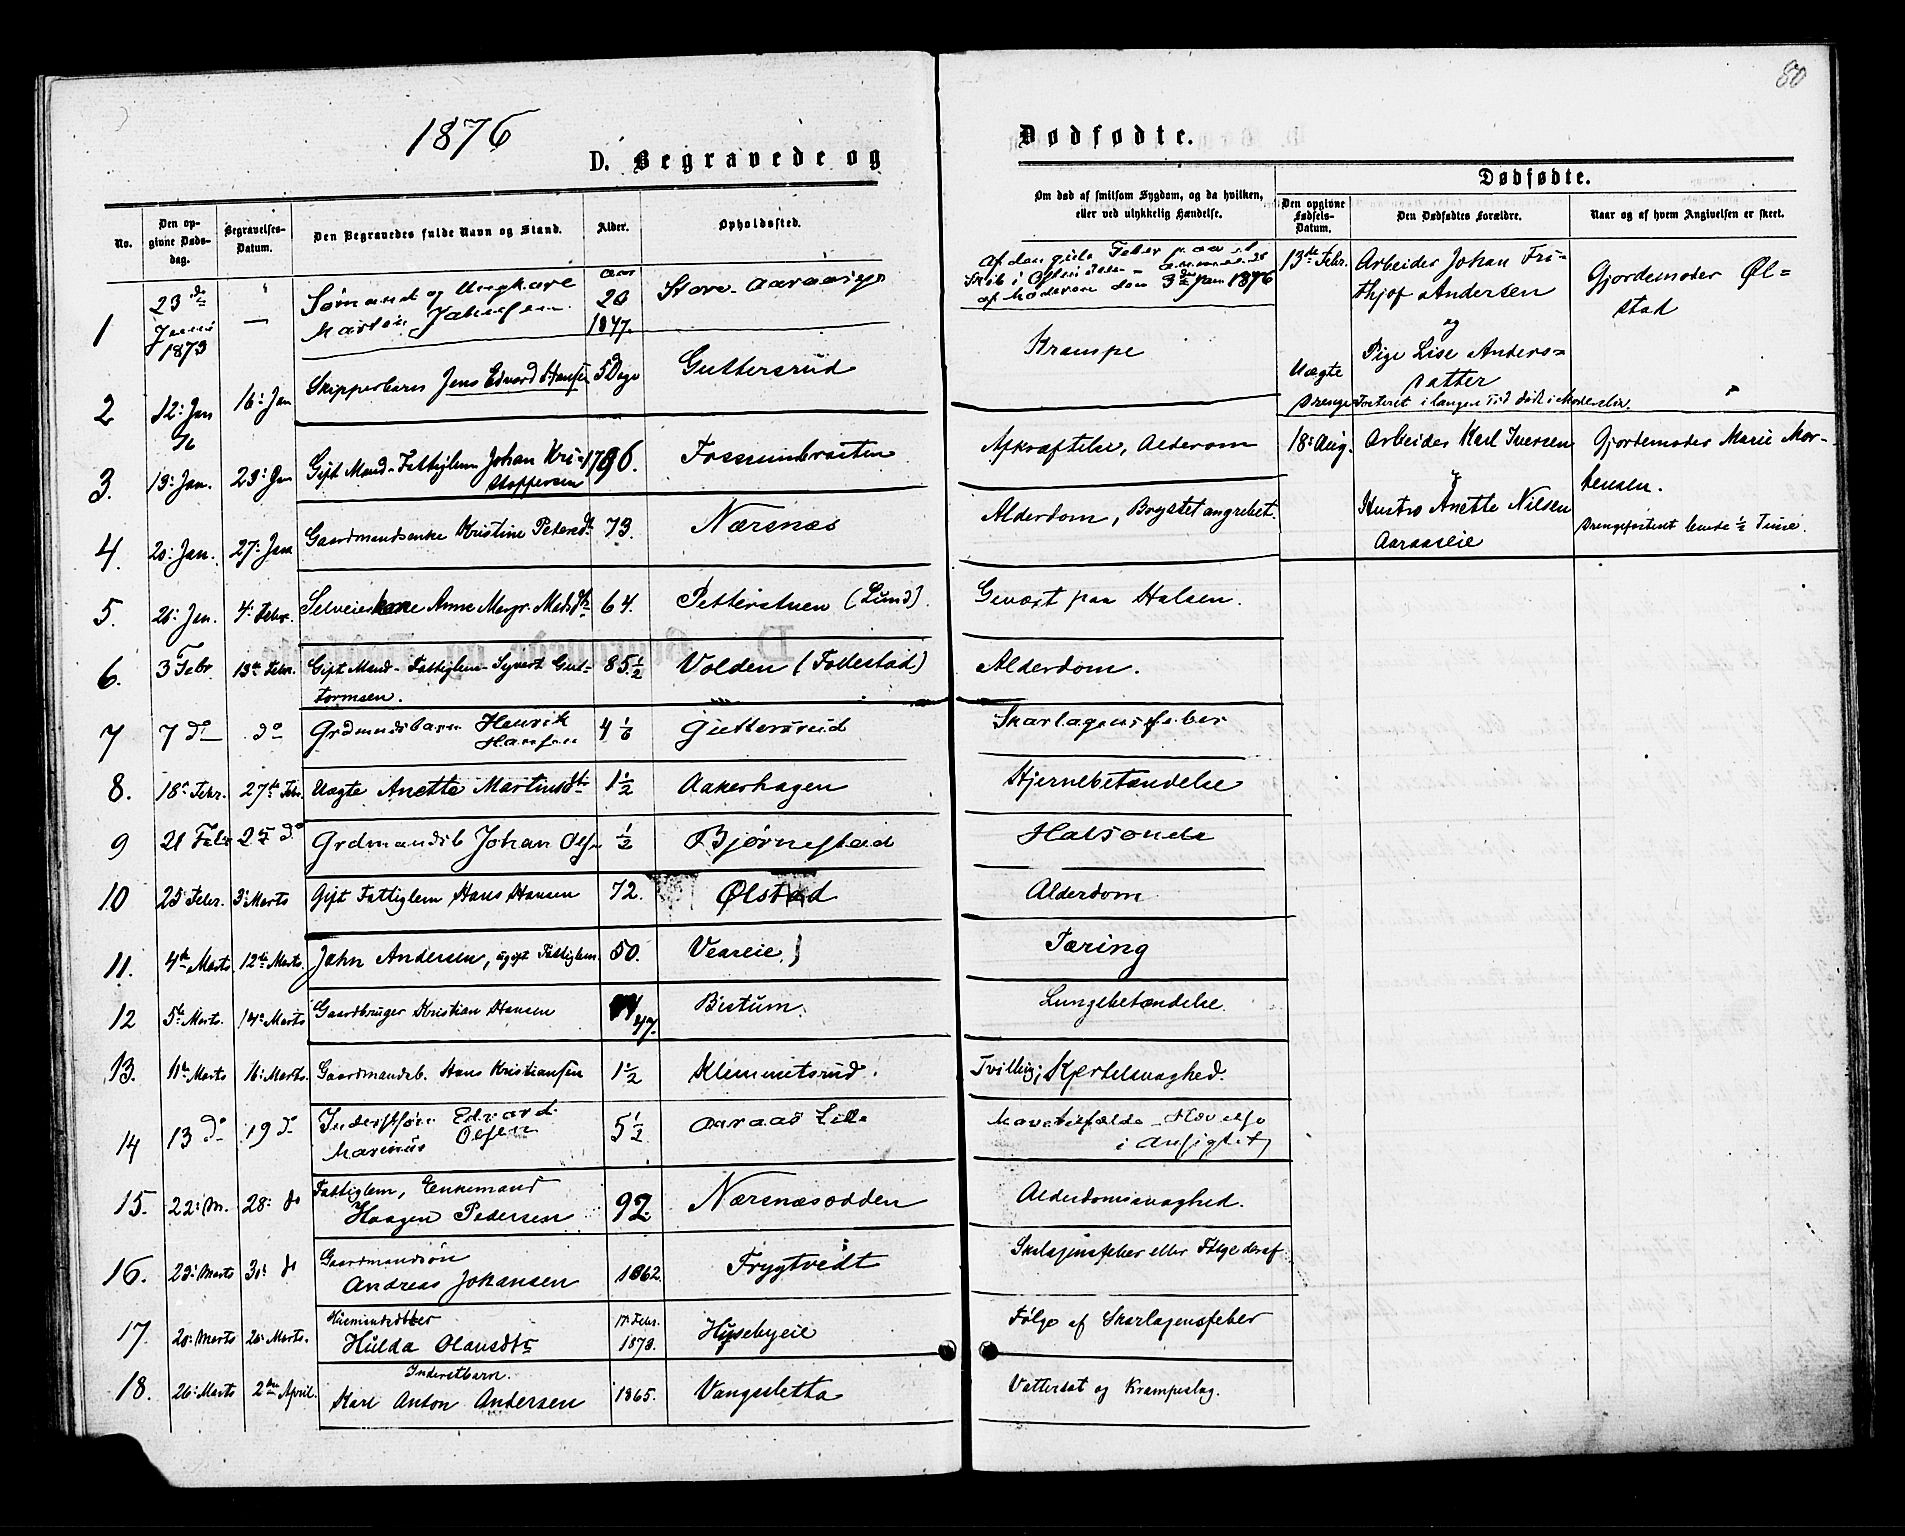 80
1876
D. Begravede og
Dødfødte.
No.
Den opgivne Dødsdag.
Begravelses-Datum.
Den Begravedes fulde Navn og Stand.
Alder.
Opholdssted.
Om død af smitsom Sygdom, og da hvilken, eller ved ulykkelig Hændelse.
Dødfødte.
Den opgivne Fødsels-Datum.
Den Dødfødtes Forældre.
Naar og af hvem Angivelsen er skeet.
1 23de 1873 — Sømand og Ungkarl 1847 Store Aaraas
Af den gule Feber paa et Skib i Ostindien – anmeldt af Moderen den 3de Jan 1876
2 12: Jan 16: Jan Skipperbarn Jens Edvard Hansen 5 Dage Guttersrud Krampe
3. 13: Jan. 23: Jan Gift Mand - Fattiglem Johan Kristoffersen 1796. Afkræftelse, Alderdom
4. 20: Jan. 27: Jan Gaardmandsenke Kristine Petersdt 73. Nærsnæs Alderdom, Brystet angrebet.
5. 26: Jan. 4: Febr. Selveierkone Anne Margr. Madsdtr 64. Petterstuen (Lund). Gevæxt paa Halsen.
6. 3 Febr. 13de Febr. Gift Mand - Fattiglem - Syvert Guttormsen. 85 1/2 Volden (Follestad) Alderdom.
7 7 do do Grdmandsbarn Henrik Hansen 4 Guttersrud Skarlagensfeber
8. 18: Febr. 27de Febr. Uægte Anette Martinsdtr 1 1/2 Aakerhagen Hjernebetændelse
9 21 Febr 25 do Grdmandsb Johan Olsen 1/2 Bjørnestad Halsonde
10 25 Febr. 3: Marts Gift Fattiglem Hans Hansen 72. Ølstad Alderdom
11. 4de Marts 12te Marts. John Andersen, ugift Fattiglem. 50. Veaseie Tæring
12 5te Marts. 14de Marts Gaardbruger Kristian Hansen 47. Bistum. Lungebetændelse.
13. 11te Marts 16: Marts. Gaardmandsb. Hans Kristiansen 1 1/2 Klemmitsrud. Tvilling; Kjertelsvaghed.
14 13 do 19 do Inderstsøn Edvard Marinius Olsen 5 1/2 Aaraas Lille Mavetilfælde - Hævelse i Ansigtet
15. 22: M. 28: do Fattiglem, Enkemand Haagen Pedersen 92. Nærsnæsodden Alderdomssvaghed.
16. 23: Marts 30: do Gaardmandsøn Andreas Johansen 1862. Frygtvedt Skarlagensfeber eller Følge deraf
17. 20: Marts 26: Marts. Hulda Olausdtr 17: Febr. 1873. Husebyeie Følge af Skarlagensfeber
18. 26: Marts 2den April. Inderstbarn. Karl Anton Andersen 1865. Vangsletta Vattersot og Krampeslag.
13de Febr. Arbeider Johan Frithjof Andersen og Pige Lise Andersdatter
Gjordemoder Ølstad
Uægte Drenge Fosteret i længere Tid død i Modersliv.
18: Aug. Arbeider Karl Iversen & Hustro Anette Nilsen Aaraaseie
Gjordemoder Marie Mortensen.
Drengefosteret levede 1/2 Time.